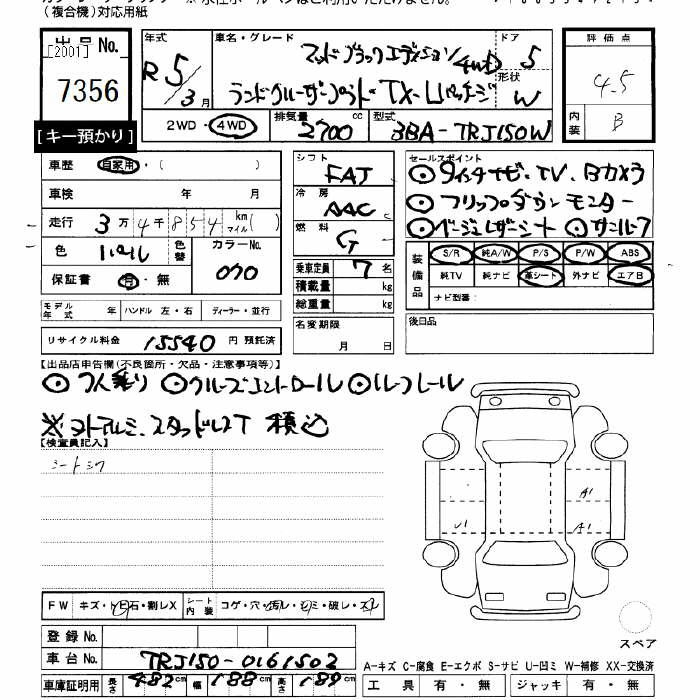 (複合機)対応用紙
出品No.
[2001]
7356
[キー預かり]
年式
R5/3月
車名・グレード
マットブラックエディション 4WD
ランドクルーザープラド TX-Lパッケージ
ドア
5
形状
W
2WD・4WD
排気量
2700 cc
型式
3BA-TRJ150W
評価点
4.5
内装
B
車歴
自家用・( )
車検 年 月
走行 3万4千854 km マイル( )
色 パール
色替
カラーNo.
070
保証書 有・無
モデル年式 年
ハンドル 左・右
ディーラー・並行
リサイクル料金 15540 円 預託済
シフト FAT
冷房 AAC
燃料 G
乗車定員 7 名
積載量 kg
総重量 kg
名変期限
月 日
セールスポイント
◎9インチナビ・TV・Bカメラ
◎フリップダウンモニター
◎ベージュレザーシート ◎サンルーフ
装備品
S/R 純A/W P/S P/W ABS
純TV 純ナビ 革シート 外ナビ エアB
ナビ型番:
後日品
【出品店申告欄(不良箇所・欠品・注意事項等)】
◎7人乗り ◎クルーズコントロール ◎ルーフレール
※ヨコアルミ、スタッドレスT 積込
【検査員記入】
シートシワ
A1
U1
A1
FW キズ・ヒビ・石・割レX
シート内装 コゲ・穴・汚レ・シミ・破レ・スレ
登録No.
車台No. TRJ150-0161502
車庫証明用 長さ 482 cm 幅 188 cm 高さ 189 cm
スペア
A-キズ C-腐食 E-エクボ S-サビ U-凹ミ W-補修 XX-交換済
工具 有・無 ジャッキ 有・無